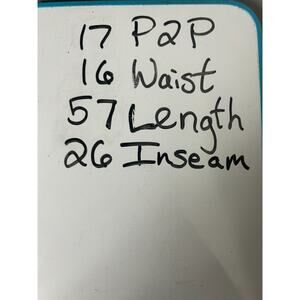 17 P2P
16 Waist
57 Length
26 Inseam